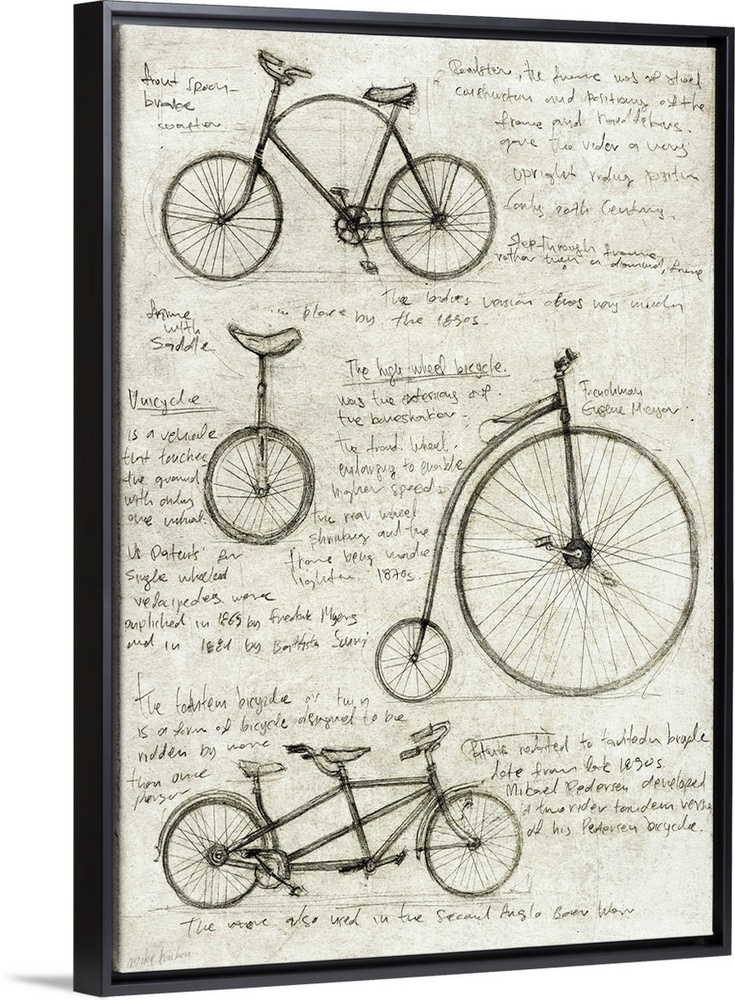 front spoon-
brake
Roadster, the frame was of steel
construction and positions of the
frame and handlebars.
gave the rider a very
upright riding position
early 20th Century.
Step-through frame
rather than a diamond, frame
The ladies version was very much
in place by the 1890s.
frame
with
Saddle
Unicycle
is a vehicle
that touches
the ground
with only
one wheel.
US Patents for
Single wheeled
velocipedes were
published in 1869 by Fredrik Myers
and in 1881 by Battista Scuri
The high wheel bicycle.
was the extension of
the boneshaker.
the front wheel.
enlarging to enable
higher speeds.
the rear wheel
shrinking and the
frame being made
lighter. 1870s.
Frenchman
Eugene Meyer.
The tandem bicycle or twin
is a form of bicycle designed to be
ridden by more
than one
person
Patents related to tandem bicycle
date from late 1890s.
Mikael Pedersen developed
a two rider tandem version
of his Pedersen bicycle.
The were also used in the Second Anglo Boer War